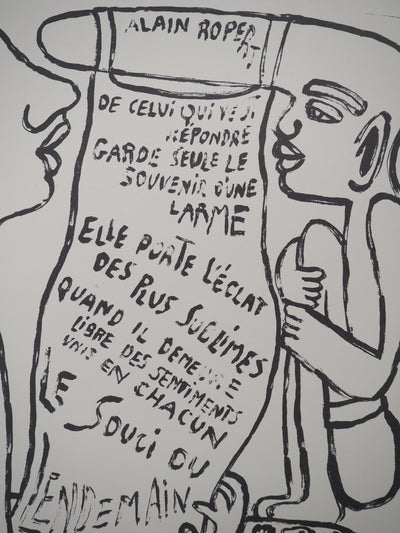 ALAIN ROPERT
DE CELUI QUI VEUT
RÉPONDRE
GARDE SEULE LE
SOUVENIR D'UNE
LARME
ELLE PORTE L'ÉCLAT
DES PLUS SUBLIMES
QUAND IL DEMEURE
LIBRE DES SENTIMENTS
UNIS EN CHACUN
LE SOUCI DU
LENDEMAIN